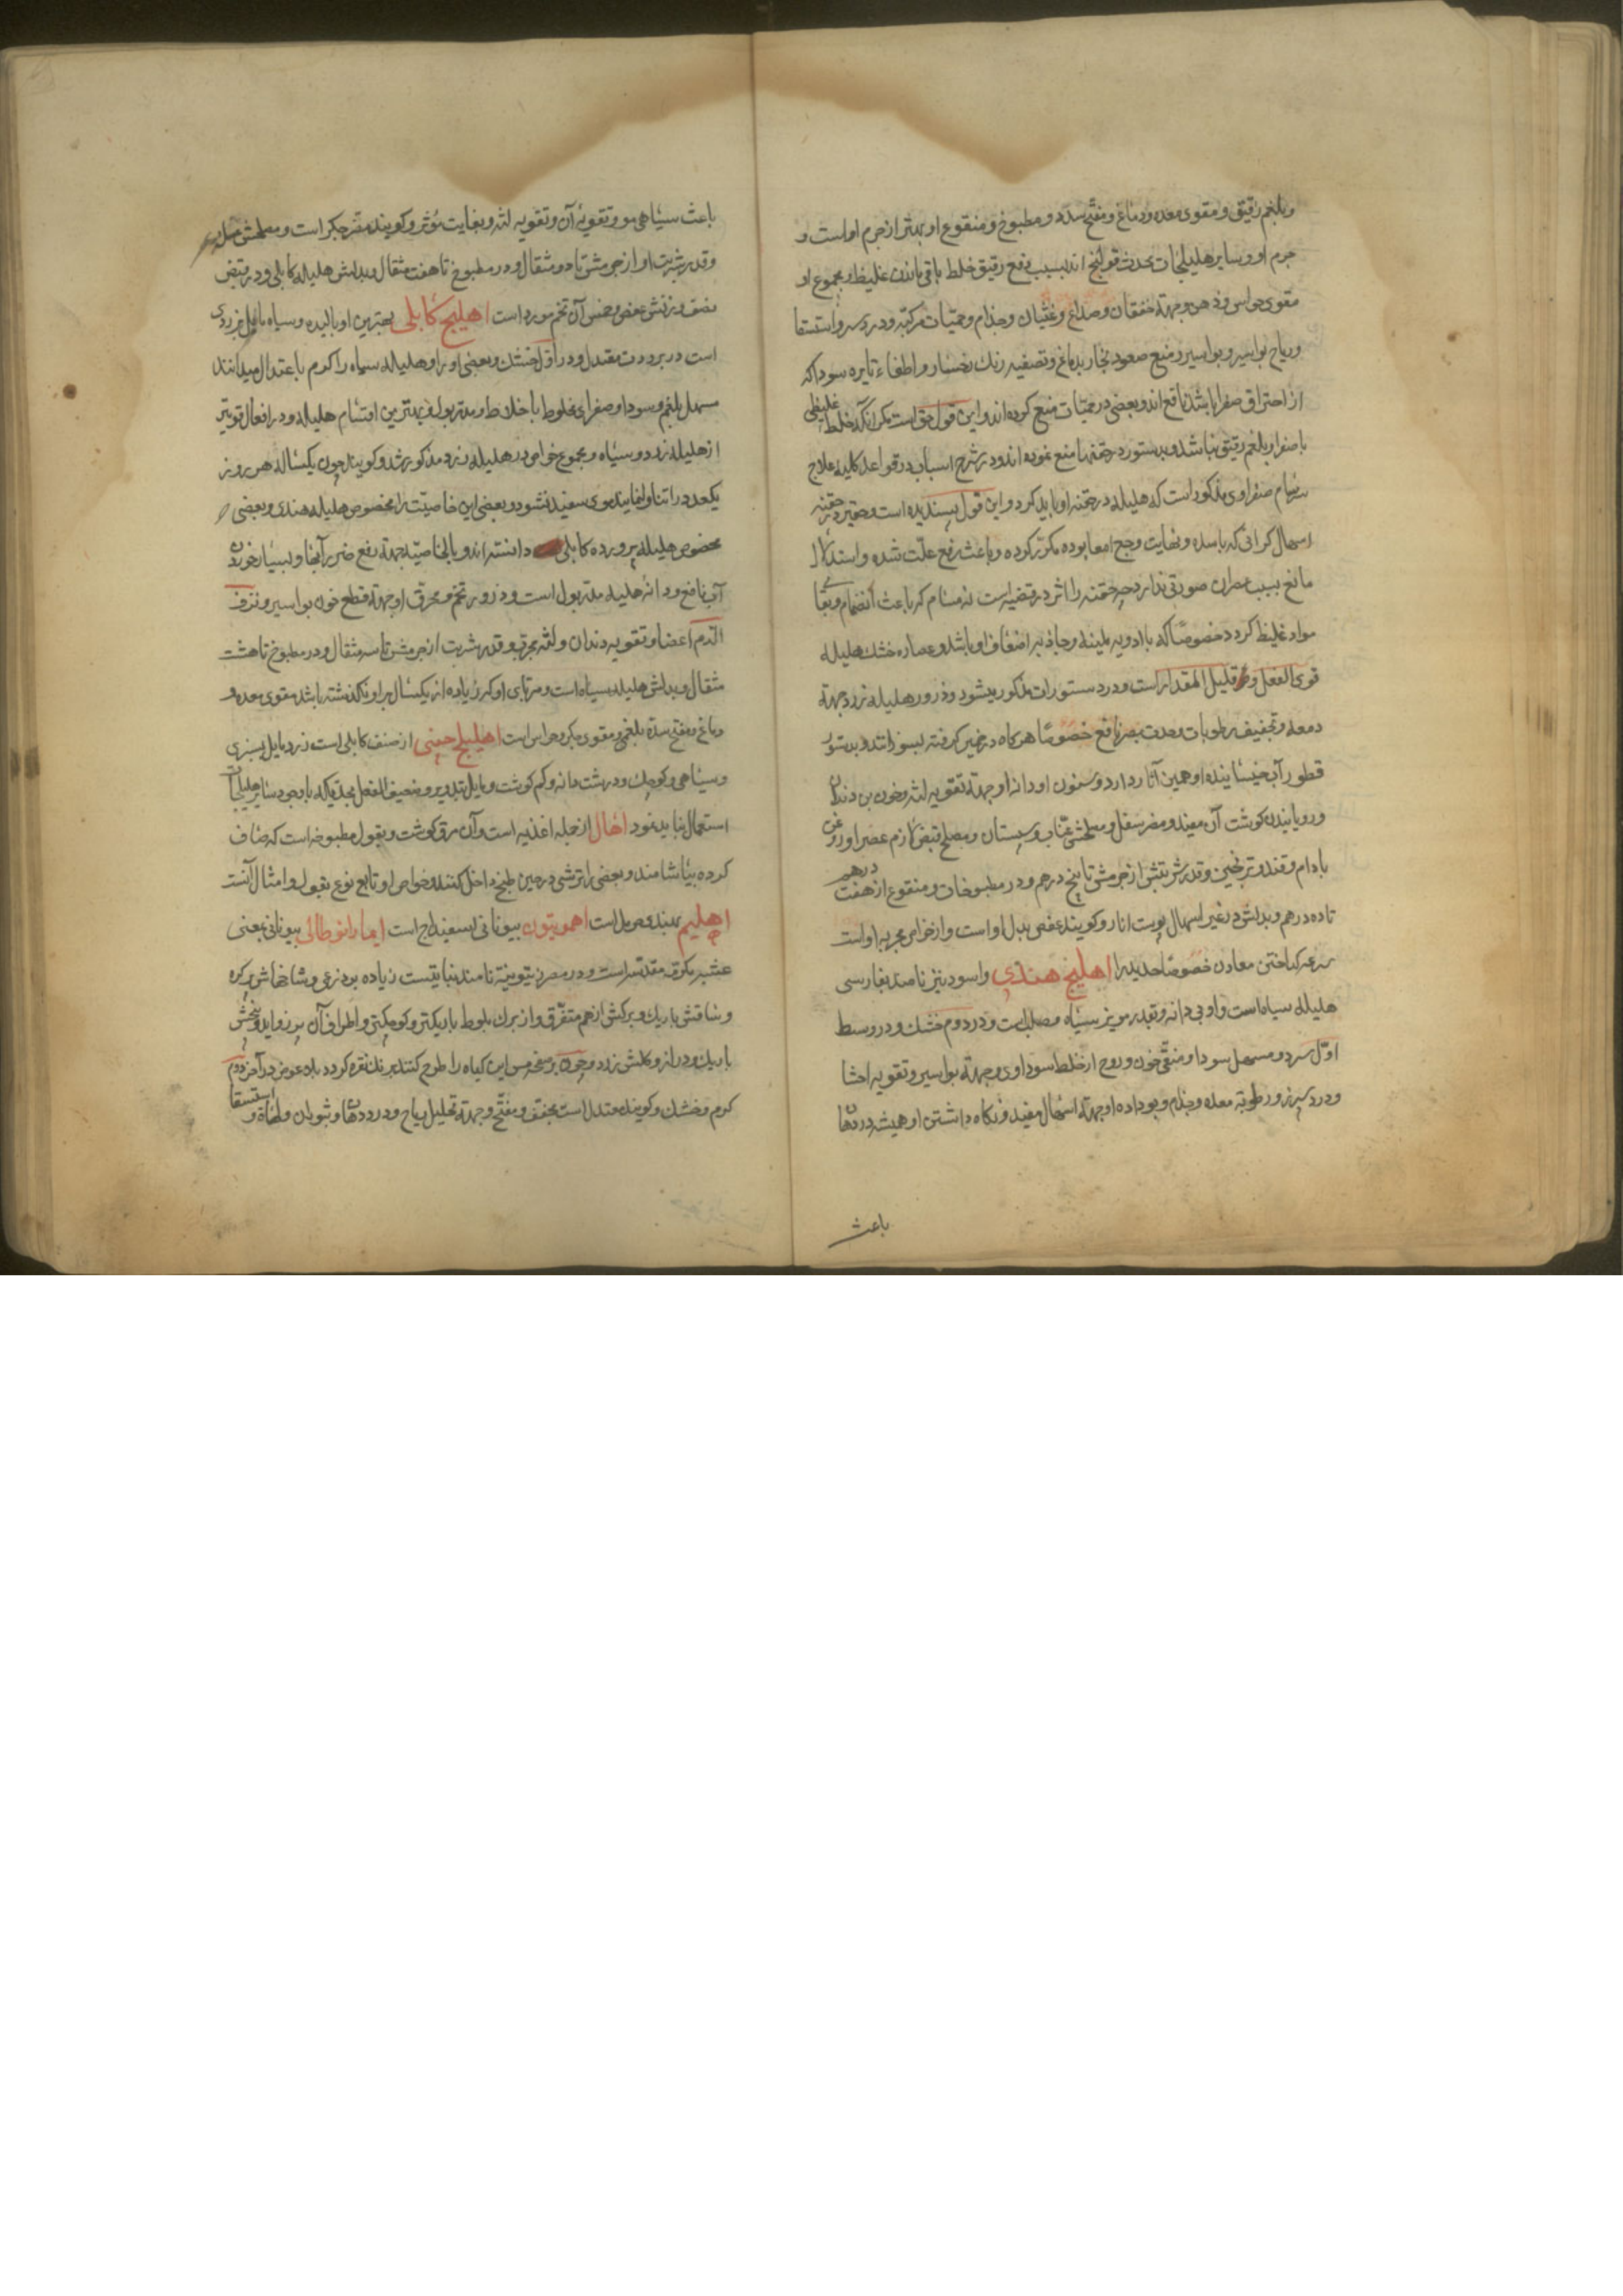 وبلغم رقیق و مقوی معده و دماغ و مفتح سدد و مطبوخ و منقوع او بهتر از جرم اوست و
جرم او و سایر هلیلجات محدث قولنج اند بسبب دفع رقیق خلط باقی ماندن غلیظ و مجموع او
مقوی حواس و ذهن و جهة خفقان و صداع و غثیان و جذام و حمیات مرکبه و درد سر و استسقا
و ریاح بواسیر و بواسیر و منع صعود بخار بدماغ و تصفیه رنك رخسار و اطفاء نایره سودا که
از احتراق صفرا باشد نافع اند و بعضی در حمیات منع کرده اند و این قول حق است مکر آنکه خلط غلیظی
با صفرا و بلغم رقیق نباشد و بدستور در حقنها منع نموده اند و در شرح اسباب در قواعد کلیه علاج
سرسام صفراوی مذکور است که هلیله در حقنه او باید کرد و این قول پسندیده است و حقیر در حقنه
اسهال کرانی که با سده و نهایت وجع امعا بوده مکرر کرده و باعث رفع علت شده و استدلال
مانع بسبب عصران صورتی ندارد چه حقنه را اثر در مقتضیه است نه مسام که باعث انضمام و بقای
مواد غلیظ کردد خصوصا که با ادویه ملینه و جاذبه اضعاف او باشد و عصاره خشك هلیله
قوی الفعل و قلیل المقدار است و در دستورات مذکور میشود و ذرور هلیله زرد جهة
دمعه و تجفیف رطوبات و حدت بصر نافع خصوصا هر کاه در خمیر کرفته بسوزانند و بدستور
قطور آب خیسانیده او همین آثار دارد و سنون او و دانه او جهة تقویه لثه و خون بن دندان
و رویانیدن کوشت آن مفید و مضر سفل و مصلحش عناب و سپستان و مصلح قبض لازم عصر او روغن
بادام و قند و ترنجبین و قدر شربتش از جرمش تا پنج درهم و در مطبوخات و منقوع از هفت درهم
تا ده درهم و بدلش در غیر اسهال پوست انار و کویند عفص بدل او است و از خواص مجربه او است
سرعه کداختن معادن خصوصا حدید را اهلیلج هندی و اسود نیز نامند بفارسی
هلیله سیاه است و او بی دانه و بقدر مویز سیاه و صلب است و در دوم خشك و در وسط
اول سرد و مسهل سودا و منقی خون و روح از خلط سوداوی و جهة بواسیر و تقویه احشا
و درد سپرز و رطوبة معده و جذام و بو داده او جهة اسهال مفید و نکاه داشتن او همیشه در دهان
باعث
باعث سیاهی مو و تقویة آن و تقویه لثه و بغایت مؤثر و کویند مضر جکر است و مصلحش عسل
و قدر شربت او از جرمش تا دو مثقال و در مطبوخ تا هفت مثقال و بدلش هلیله کابلی و در قبض
نصف وزنش عفص و خمس آن تخم مورد است اهلیلج کابلی بهترین او بالیده و سیاه مایل بزردی
است در برودت معتدل و در اول خشك و بعضی او را و هلیله سیاه را کرم باعتدال میدانند
مسهل بلغم و سودا و صفرای مخلوط باخلاط و مدر بول و بهترین اقسام هلیله و در افعال قویتر
از هلیله زرد و سیاه و مجموع خواص در هلیله زرد مذکور شد و کویند چون یکسال هر روز
یکعدد را تناول نمایند موی سفید نشود و بعضی این خاصیت را مخصوص هلیله هندی و بعضی
مخصوص هلیله پرورده کابلی دانسته اند و بالخاصیة جهة رفع ضرر آبها و بسیار خوردن
آب نافع و دانه هلیله مدر بول است و ذرور تخم و محرق او جهة قطع خون بواسیر و نزف
الدم اعضا و تقویه دندان و لثه مجرب و قدر شربت از جرمش تا سه مثقال و در مطبوخ تا هشت
مثقال و بدلش هلیله سیاه است و مربای او که زیاده از یکسال بر او نکذشته باشد مقوی معده و
دماغ و مفتح سده بلغمی و مقوی جکر و حواس است اهلیلج چینی از صنف کابلی است زرد مایل بسبزی
و سیاهی و کوچك و درشت دانه و کم کوشت و مایل بتدویر و ضعیف الفعل بحدیکه با وجود سایر هلیلجات
استعمال نباید نمود اهال از جمله اغذیه است و آن مرق کوشت و بقول مطبوخه است که صاف
کرده بیاشامند و بعضی را ترشی در حین طبخ داخل کنند و خواص او تابع نوع بقول و امثال آنست
اهلیم بهندی صل است اهمویون بیونانی اسفیداج است ایمارانوطالی بیونانی بمعنی
عشبه مکرمه مقدسه است و در مصر زیتونیة نامند نباتیست زیاده بر ذرعی و شاخهاش پر کره
و ساقش باریك و برکش از هم متفرق و از برك بلوط باریکتر و کوچکتر و اطراف آن پر زواید و بیخش
باریك و دراز و کلش زرد و چون بر صفحه مس این کیاه را طرح کنند برنك نقره کردد بلا عوض در آخر دوم
کرم و خشك و کویند معتدل است مجفف و مفتح و جهة تحلیل ریاح و درد دهان و استسقا